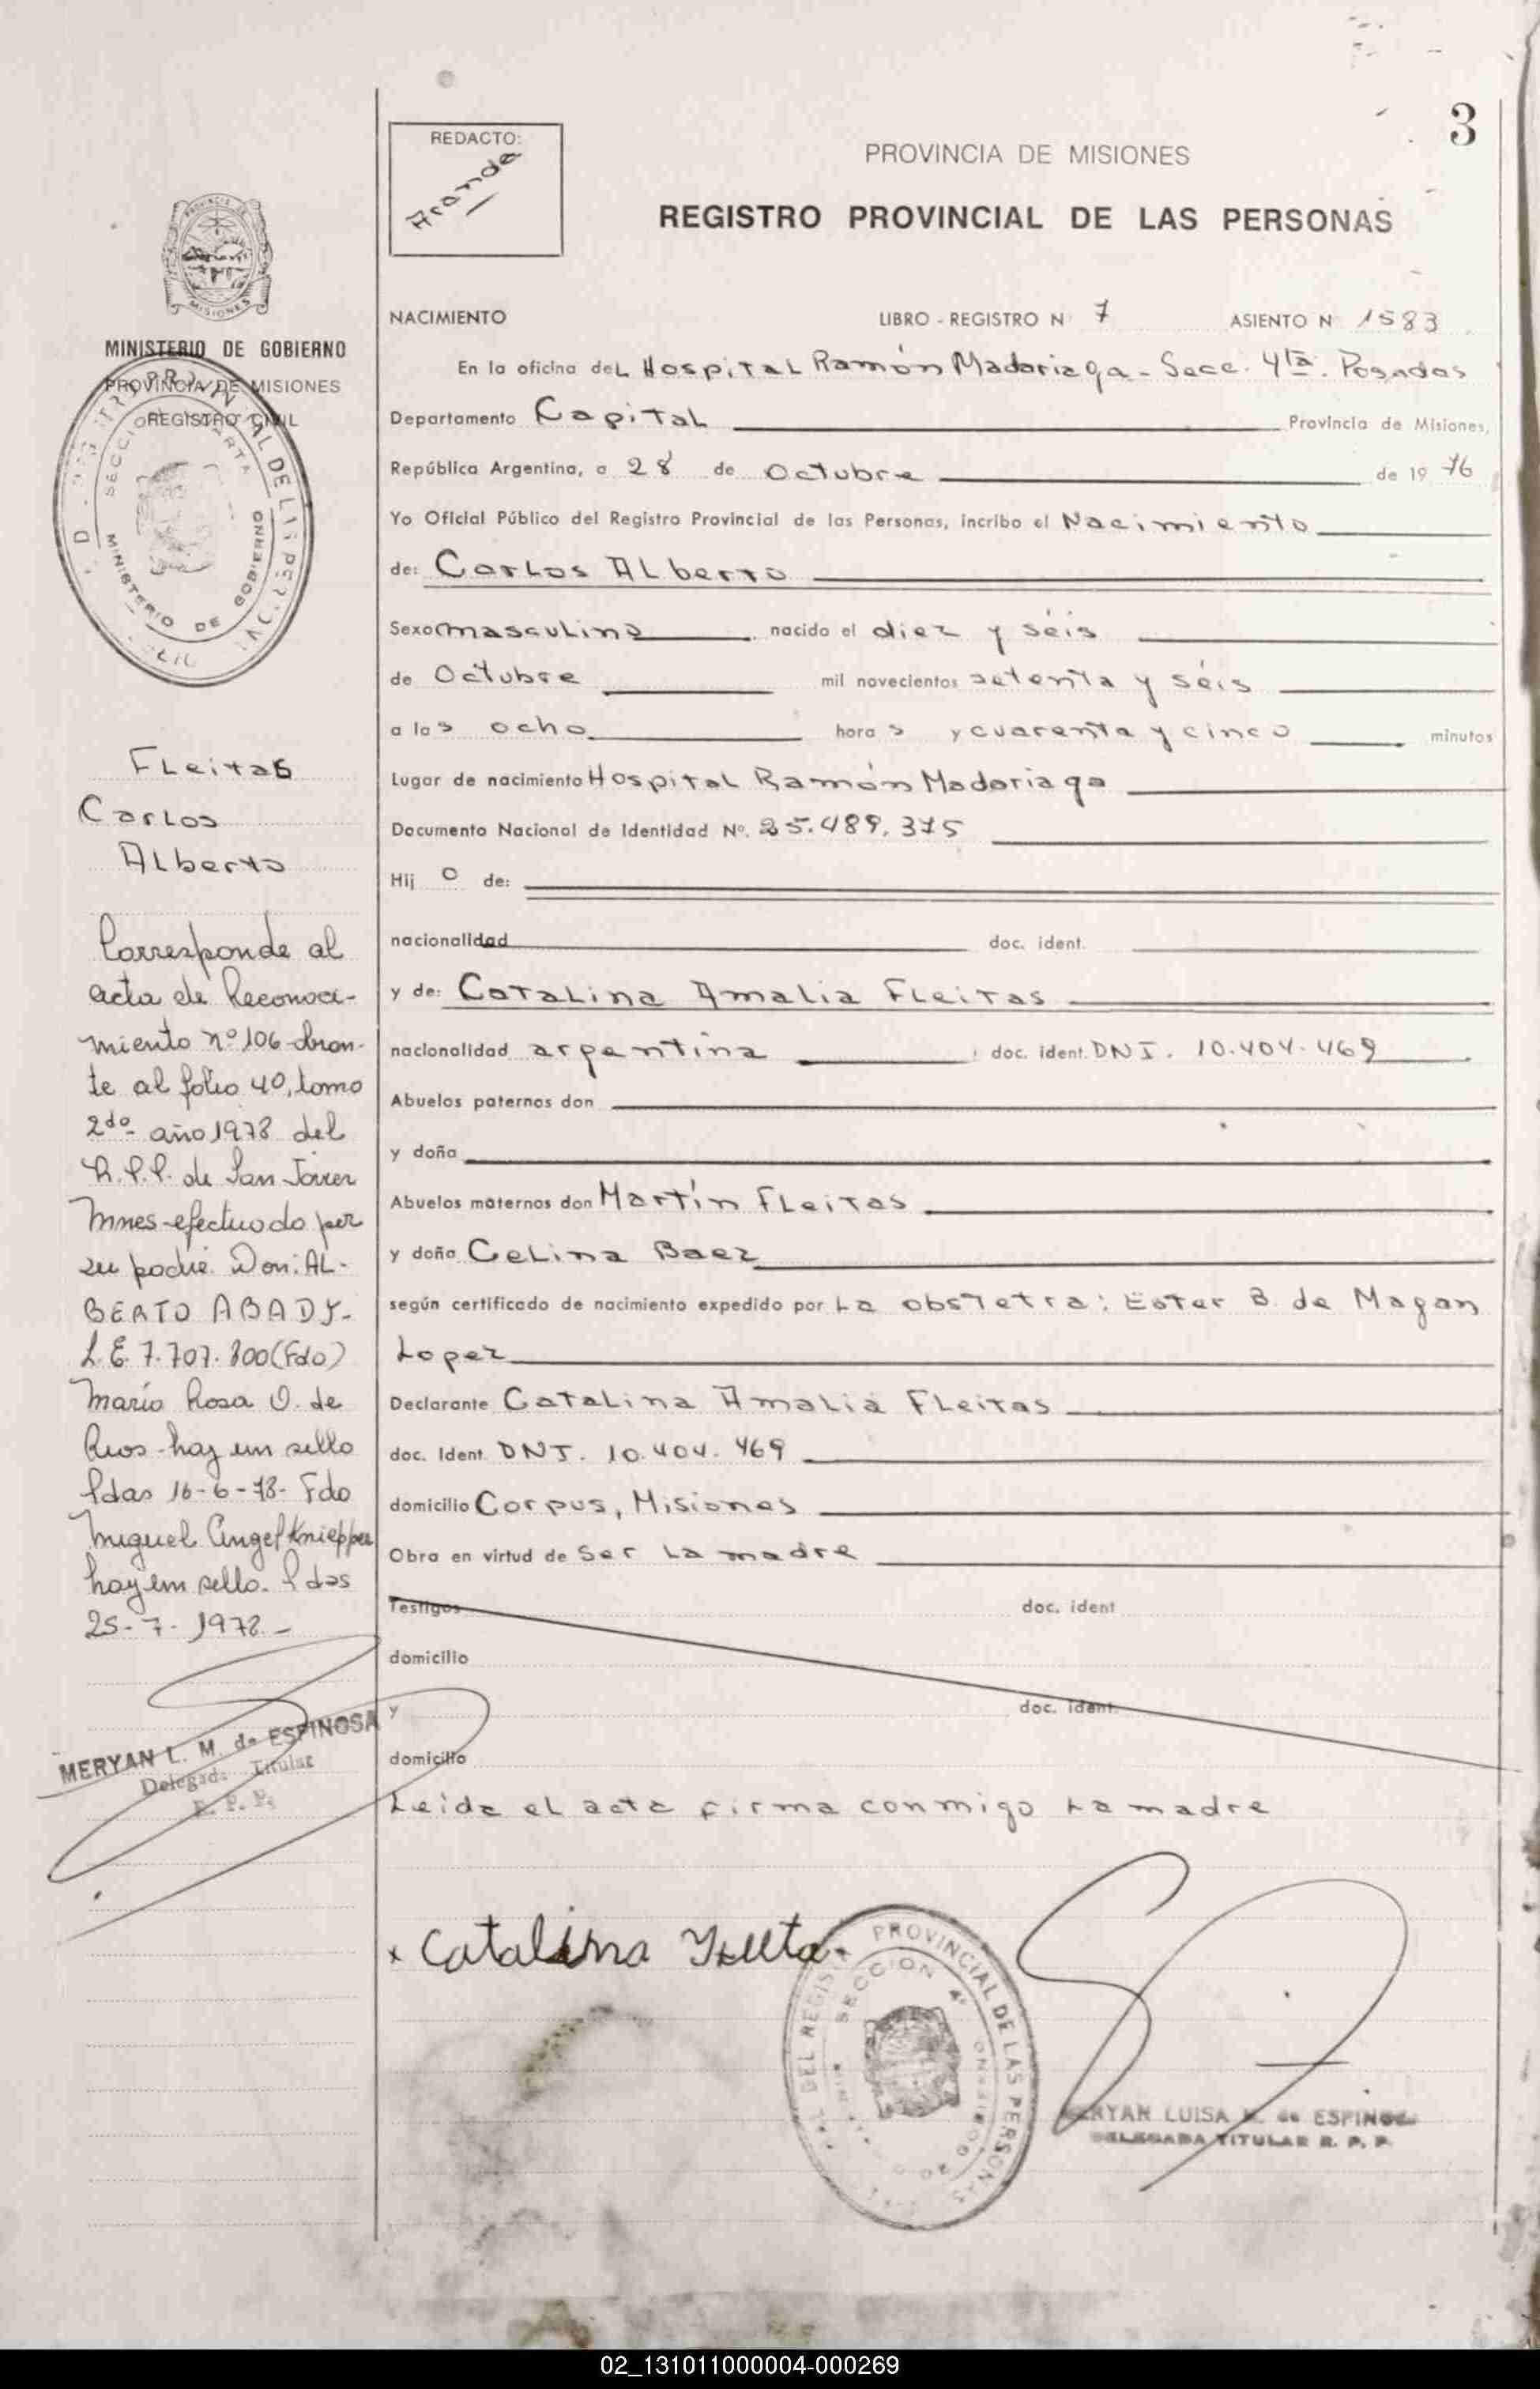 3
REDACTO:
Aranda
PROVINCIA DE MISIONES
REGISTRO PROVINCIAL DE LAS PERSONAS
MISIONES
MINISTERIO DE GOBIERNO
PROVINCIA DE MISIONES
REGISTRO CIVIL
SECCION CUARTA
MINISTERIO DE GOBIERNO
NACIMIENTO LIBRO - REGISTRO N 7 ASIENTO N 1583
En la oficina del Hospital Ramón Madariaga - Secc. 4ta. Posadas
Departamento Capital Provincia de Misiones,
República Argentina, a 28 de Octubre de 19 76
Yo Oficial Público del Registro Provincial de las Personas, incribo el Nacimiento
de: Carlos Alberto
Sexo masculino nacido el diez y séis
de Octubre mil novecientos setenta y séis
a las ocho horas y cuarenta y cinco minutos
Lugar de nacimiento Hospital Ramón Madariaga
Documento Nacional de Identidad Nº. 25.489.375
Hij o de:
nacionalidad doc. ident.
y de: Catalina Amalia Fleitas
nacionalidad argentina doc. ident. DNI. 10.404.469
Abuelos paternos don
y doña
Abuelos maternos don Martín Fleitas
y doña Celina Baez
según certificado de nacimiento expedido por La obstetra: Ester B. de Magan
Lopez
Declarante Catalina Amalia Fleitas
doc. Ident. DNI. 10.404.469
domicilio Corpus, Misiones
Obra en virtud de Ser La madre
Testigos doc. ident
domicilio
y doc. ident.
domicilio
Leida el acta firma conmigo La madre
Fleitas
Carlos
Alberto
Corresponde al
acta de Reconoci-
miento nº 106 obran-
te al folio 40, tomo
2do año 1978 del
R.P.P. de San Javier
Mnes-efectuado por
su padre Don: AL-
BERTO ABADY-
L.E. 7.707.800 (Fdo)
Maria Rosa O. de
Rios-hay un sello
Pdas 16-6-78- Fdo
Miguel Angel Kniepper
hay un sello. Pdas
25-7-1978.-
MERYAN L. M. de ESPINOSA
Delegada Titular
R. P. P.
x Catalina
DEL REGISTRO PROVINCIAL DE LAS PERSONAS
SECCION 4ª
MERYAN LUISA M. de ESPINOSA
DELEGADA TITULAR R. P. P.
02_131011000004-000269